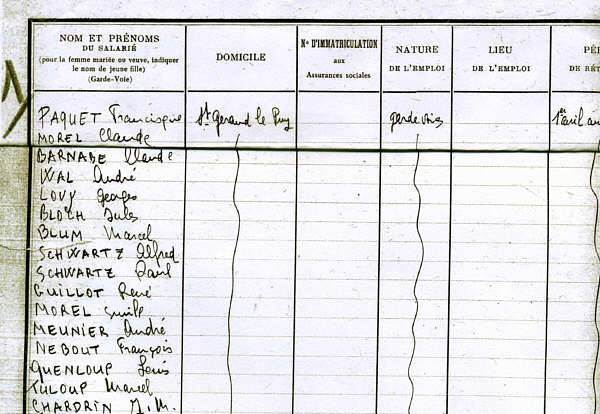 NOM ET PRÉNOMS
DU SALARIÉ
(pour la femme mariée ou veuve, indiquer
le nom de jeune fille)
(Garde-Voie)
DOMICILE
N° D'IMMATRICULATION
aux
Assurances sociales
NATURE
DE L'EMPLOI
LIEU
DE L'EMPLOI
PÉR
DE RÉT
PAQUET Francisque St Gerand le Puy garde voies 1er avril au
MOREL Claude
BARNABE Claude
WAL André
LOVY Georges
BLOCH Jules
BLUM Marcel
SCHWARTZ Alfred
SCHWARTZ Paul
GUILLOT René
MOREL Emile
MEUNIER André
NEBOUT François
QUENLOUP Louis
TULOUP Marcel
CHARDRIN J.M.